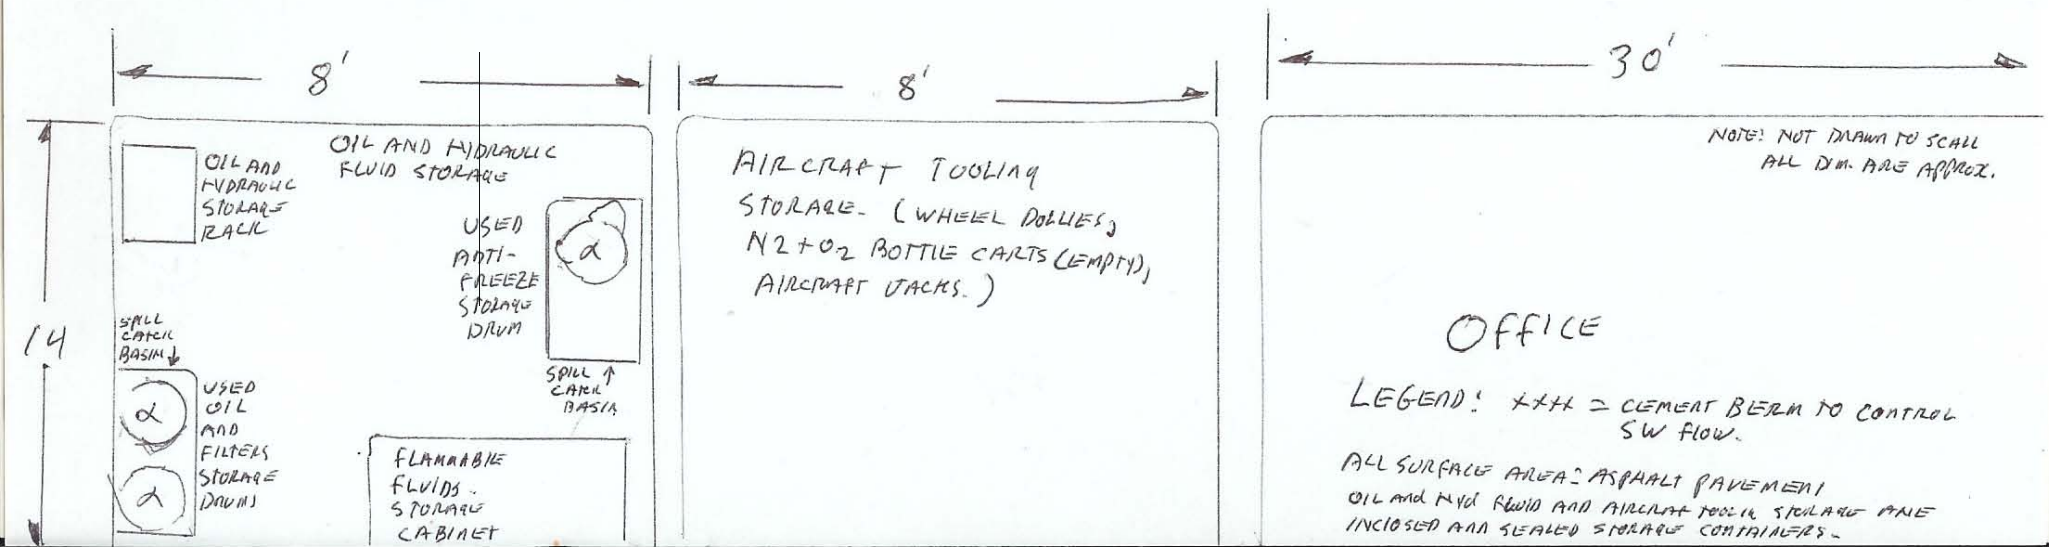 8'
8'
30'
14
OIL AND HYDRAULIC
FLUID STORAGE
OIL AND
HYDRAULIC
STORAGE
RACK
USED
ANTI-
FREEZE
STORAGE
DRUM
α
SPILL ↑
CATCH
BASIN
SPILL
CATCH
BASIN ↓
α
α
USED
OIL
AND
FILTERS
STORAGE
DRUMS
FLAMMABLE
FLUIDS
STORAGE
CABINET
AIRCRAFT TOOLING
STORAGE. (WHEEL DOLLIES,
N2 + O2 BOTTLE CARTS (EMPTY),
AIRCRAFT JACKS.)
NOTE: NOT DRAWN TO SCALL
ALL DIM. ARE APPROX.
OFFICE
LEGEND: XXXX = CEMENT BERM TO CONTROL
SW FLOW.
ALL SURFACE AREA: ASPHALT PAVEMENT
OIL AND HYD FLUID AND AIRCRAFT STORAGE ARE
INCLOSED AND SEALED STORAGE CONTAINERS.